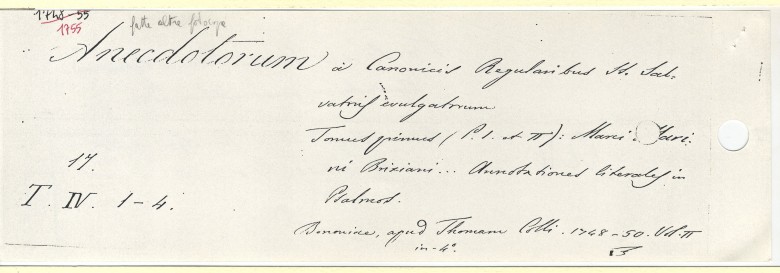 1748-55
1755
fatte altre fotocopie
Anecdotorum à Canonicis Regularibus St. Sal-
vatris evulgatorum
Tomus primus (P. I. et II): Marci Mari-
ni Brixiani... Annotationes literales in
Psalmos.
17.
T. IV. 1-4.
Bononiae, apud Thomam Colli. 1748-50. Vol. II
in-4°.